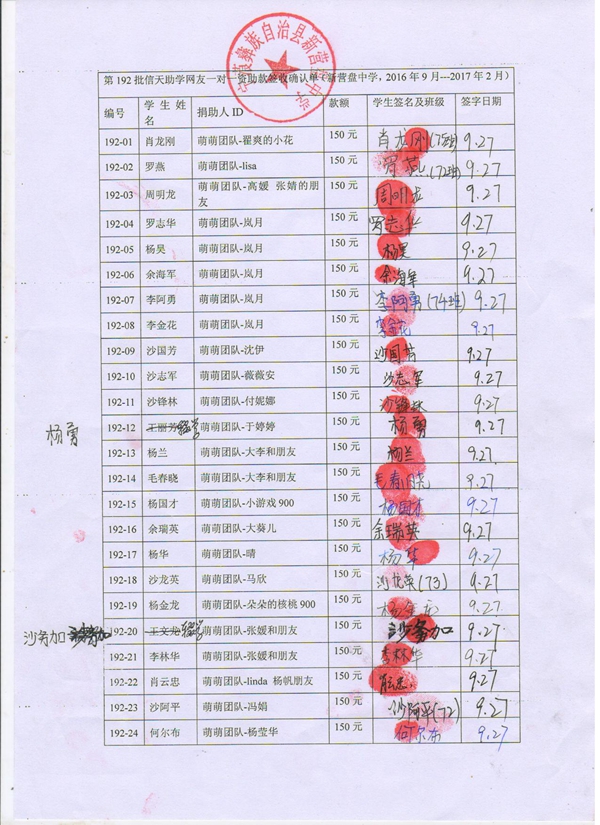 宁蒗彝族自治县新营盘中学
第192批信天助学网友一对一资助款签收确认单（新营盘中学，2016年9月---2017年2月）
编号 学生姓名 捐助人ID 款额 学生签名及班级 签字日期
192-01 肖龙刚 萌萌团队-翟爽的小花 150元 肖龙刚(75班) 9.27
192-02 罗燕 萌萌团队-lisa 150元 罗燕(72班) 9.27
192-03 周明龙 萌萌团队-高媛 张婧的朋友 150元 周明龙 9.27
192-04 罗志华 萌萌团队-岚月 150元 罗志华 9.27
192-05 杨昊 萌萌团队-岚月 150元 杨昊 9.27
192-06 余海军 萌萌团队-岚月 150元 余海军 9.27
192-07 李阿勇 萌萌团队-岚月 150元 李阿勇(74班) 9.27
192-08 李金花 萌萌团队-岚月 150元 李金花 9.27
192-09 沙国芳 萌萌团队-沈伊 150元 沙国芳 9.27
192-10 沙志军 萌萌团队-薇薇安 150元 沙志军 9.27
192-11 沙锋林 萌萌团队-付妮娜 150元 沙锋林 9.27
杨勇 192-12 王丽芳 萌萌团队-于婷婷 150元 杨勇 9.27
192-13 杨兰 萌萌团队-大李和朋友 150元 杨兰 9.27
192-14 毛春晓 萌萌团队-大李和朋友 150元 毛春晓 9.27
192-15 杨国才 萌萌团队-小游戏900 150元 杨国才 9.27
192-16 余瑞英 萌萌团队-大葵儿 150元 余瑞英 9.27
192-17 杨华 萌萌团队-晴 150元 杨华 9.27
192-18 沙龙英 萌萌团队-马欣 150元 沙龙英(73) 9.27
192-19 杨金龙 萌萌团队-朵朵的核桃900 150元 杨金龙 9.27
沙务加 192-20 王文龙 萌萌团队-张媛和朋友 150元 沙务加 9.27
192-21 李林华 萌萌团队-张媛和朋友 150元 李林华 9.27
192-22 肖云忠 萌萌团队-linda 杨帆朋友 150元 9.27
192-23 沙阿平 萌萌团队-冯娟 150元 沙阿平(72) 9.27
192-24 何尔布 萌萌团队-杨莹华 150元 何尔布 9.27